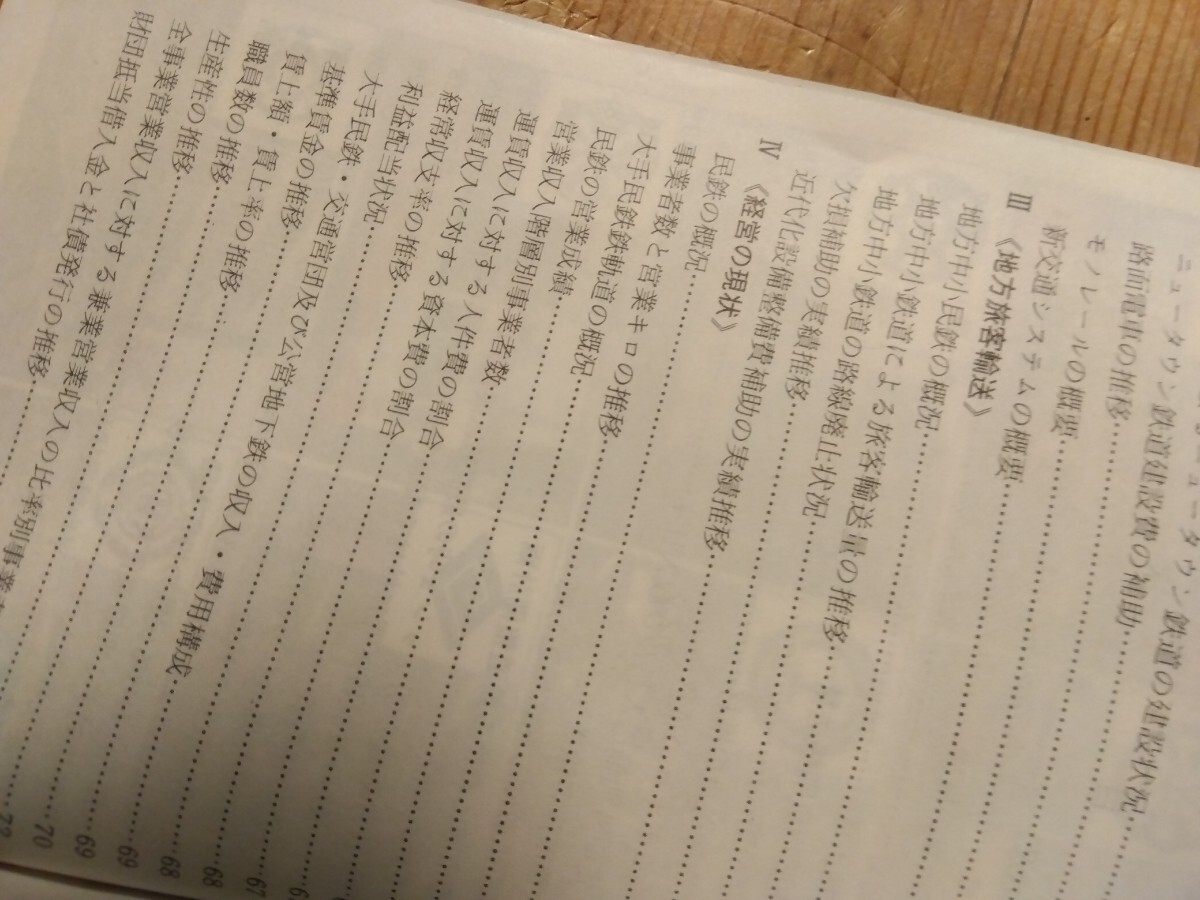 ニュータウン鉄道建設費の補助
路面電車の推移
モノレールの概要
新交通システムの概要
Ⅲ 《地方旅客輸送》
地方中小民鉄の概況
地方中小鉄道による旅客輸送量の推移
地方中小鉄道の路線廃止状況
欠損補助の実績推移
近代化設備整備費補助の実績推移
Ⅳ 《経営の現状》
民鉄の概況
事業者数と営業キロの推移
大手民鉄鉄軌道の概況
民鉄の営業成績
営業収入階層別事業者数
運賃収入に対する人件費の割合
運賃収入に対する資本費の割合
経常収支率の推移
利益配当状況
大手民鉄・交通営団及び公営地下鉄の収入・費用構成
基準賃金の推移 67
賃上額・賃上率の推移 68
職員数の推移 68
生産性の推移 69
全事業営業収入に対する兼業営業収入の比率別事業
財団抵当借入金と社債発行の推移